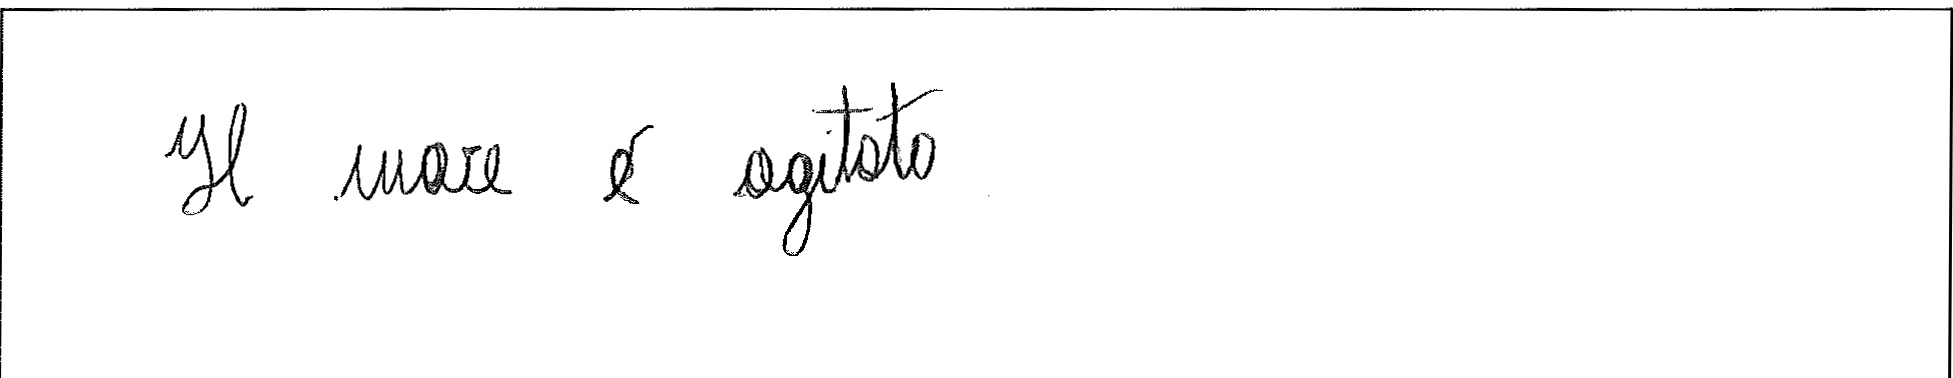 Il mare é agitato